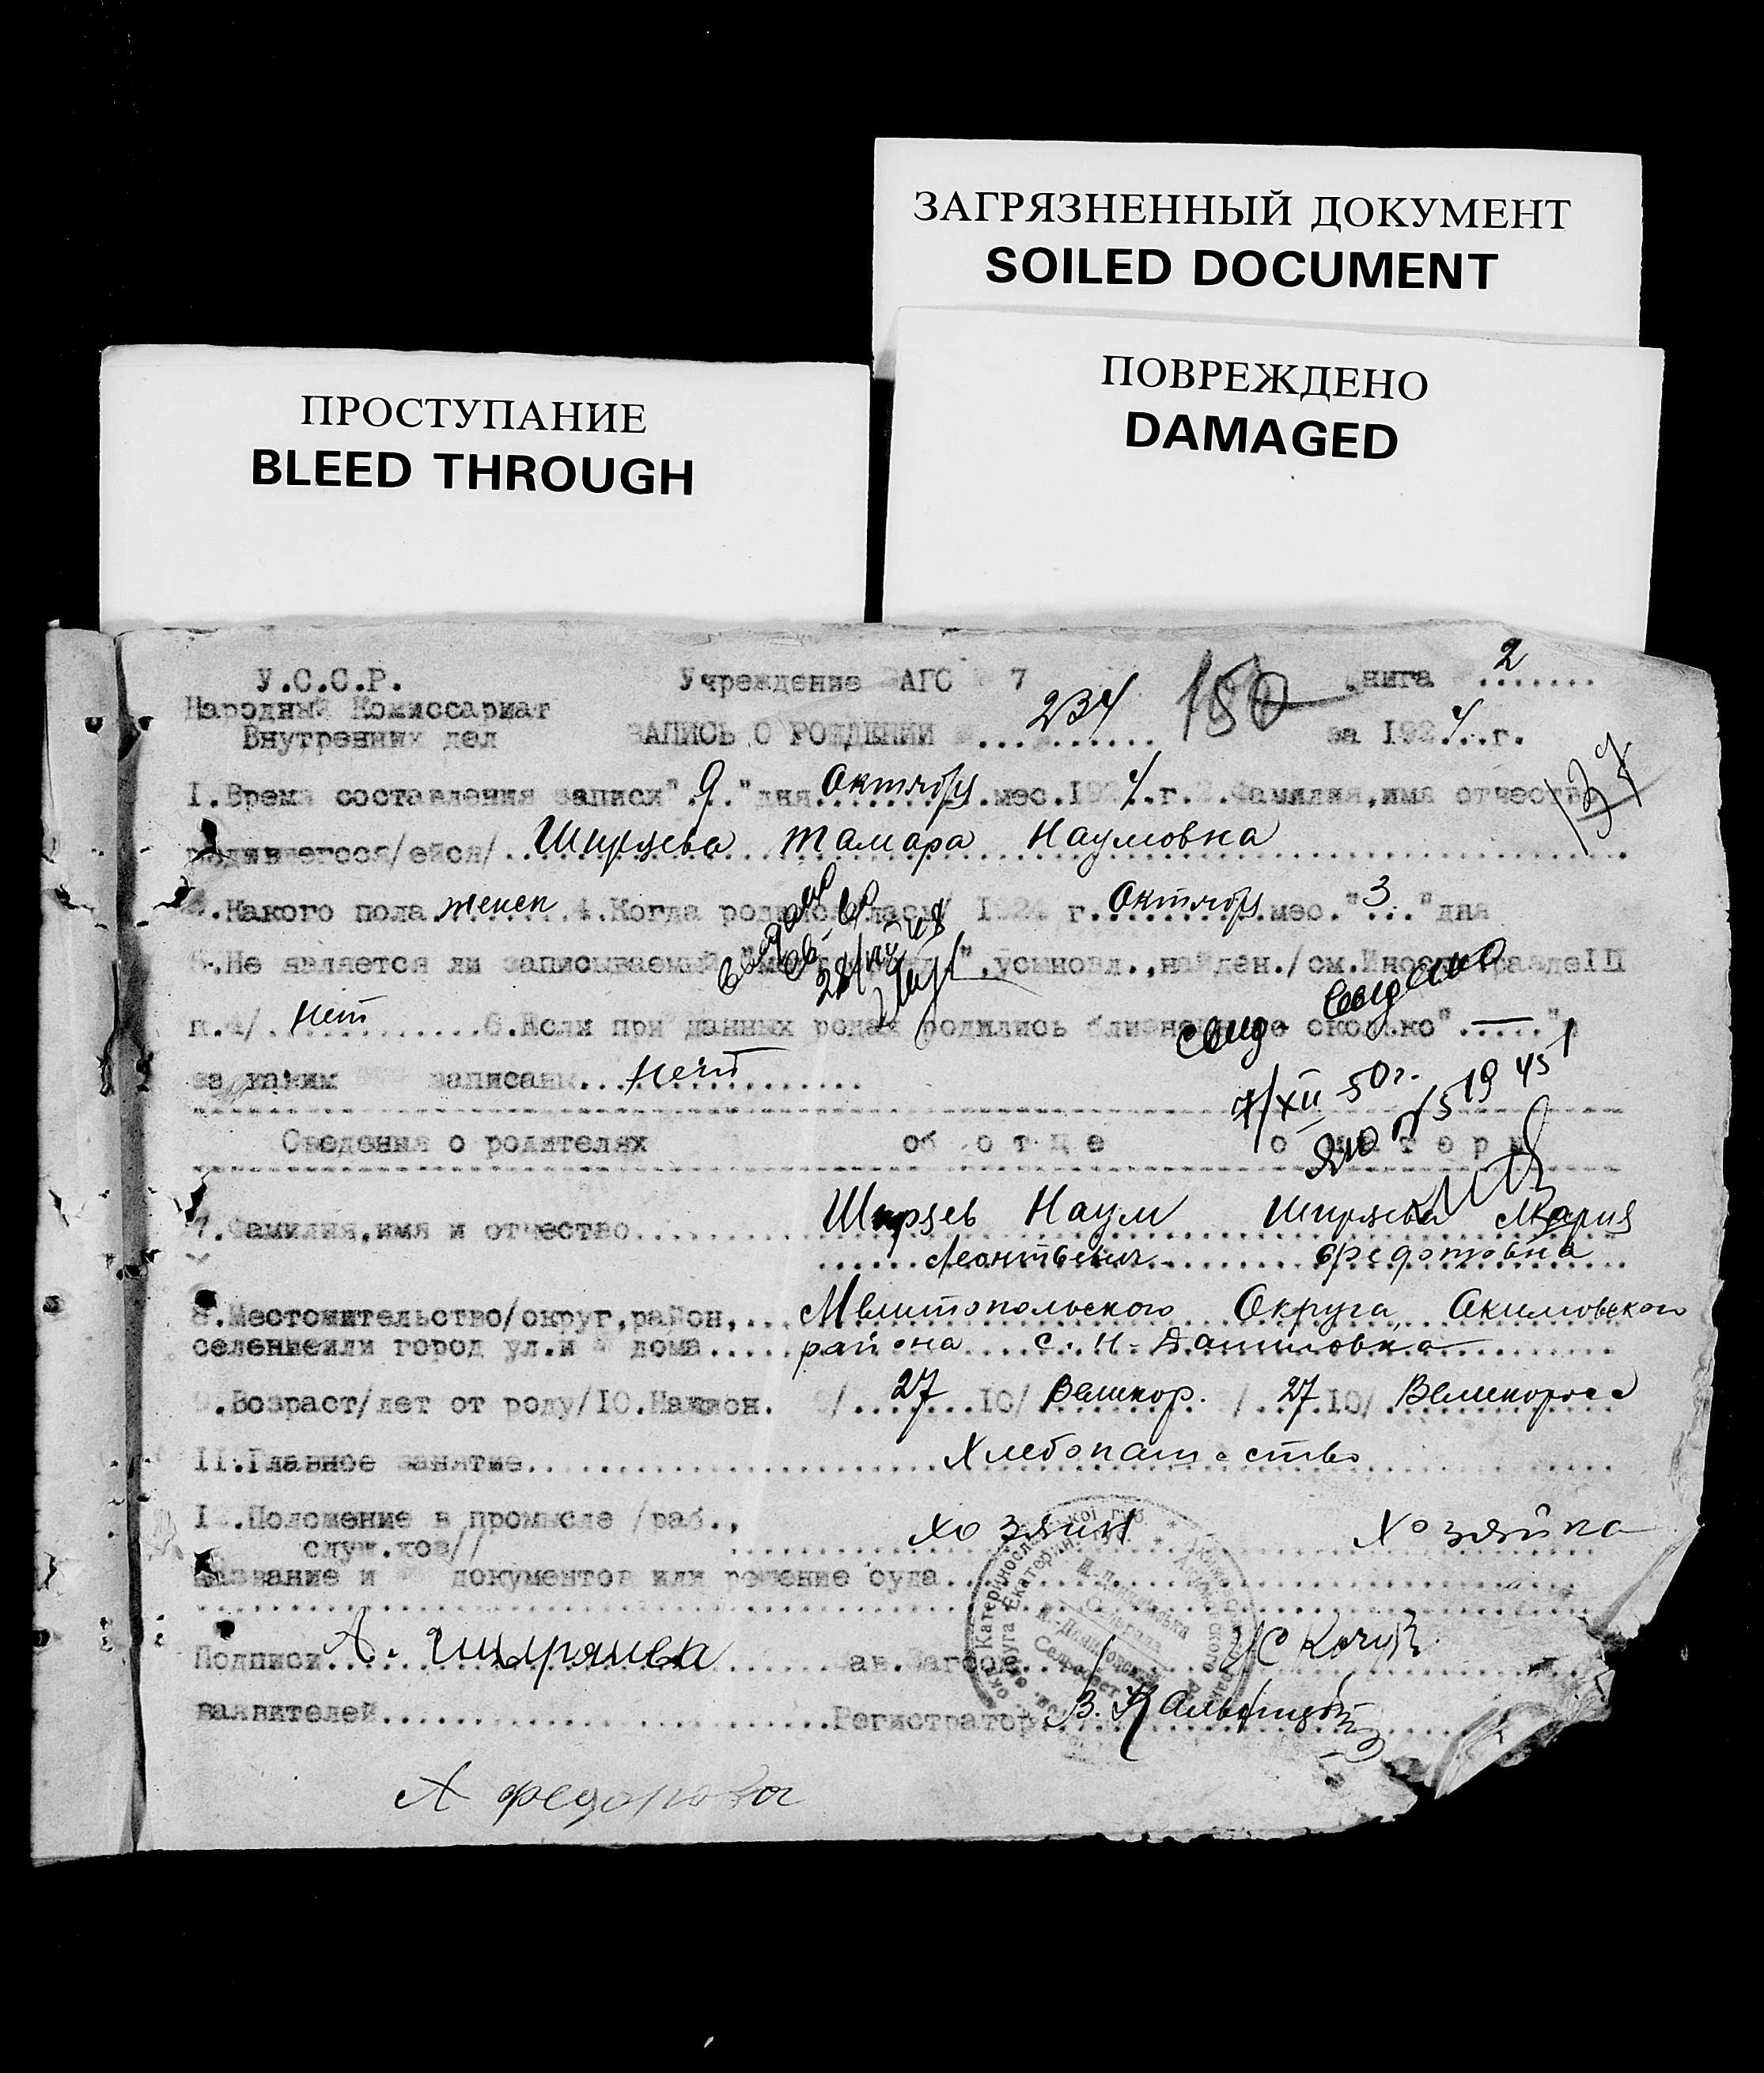 ЗАГРЯЗНЕННЫЙ ДОКУМЕНТ
SOILED DOCUMENT
ПОВРЕЖДЕНО
DAMAGED
ПРОСТУПАНИЕ
BLEED THROUGH
У.С.С.Р. Учреждение ЗАГС 7 книга 2
Народный Комиссариат
Внутренних дел ЗАПИСЬ О РОЖДЕНИИ 234 150 за 1924.г.
137
1.Время составления записи "9."дня Октябр.мес.1924.г.2.Фамилия,имя отчество
родившегося/ейся/ Ширяева Тамара Наумовна
3.Какого пола женск 4.Когда родился/лась/ 1924 г.Октябр.мес."3."дня
5.Не является ли записываемый ",усыновл.,найден./см.
п.4/. Нет 6.Если при данных родах родились близнецы сколько" — "
за каким записаны Нет
выдано
Свид. выдано
7/XII 50г.
Сведения о родителях об отце о матери
7.Фамилия,имя и отчество Ширяев Наум Ширяева Мария
Леонтьевич Федотовна
8.Местожительство/округ,район, Мелитопольского Округа, Акимовского
селениеили город ул.и № дома района с. Н-Даниловка
9.Возраст/лет от роду/10.Национ. 9/ 27 10/ Великор. 9/ 27 10/ Великоросс
11.Главное занятие Хлебопашество
12.Положение в промысле /раб.,
служ.хоз// хозяин хозяйка
Название и № документов или решение суда
Подписи А. Ширяева Зав.Загсом
заявителей Регистратор В.
А Федорова